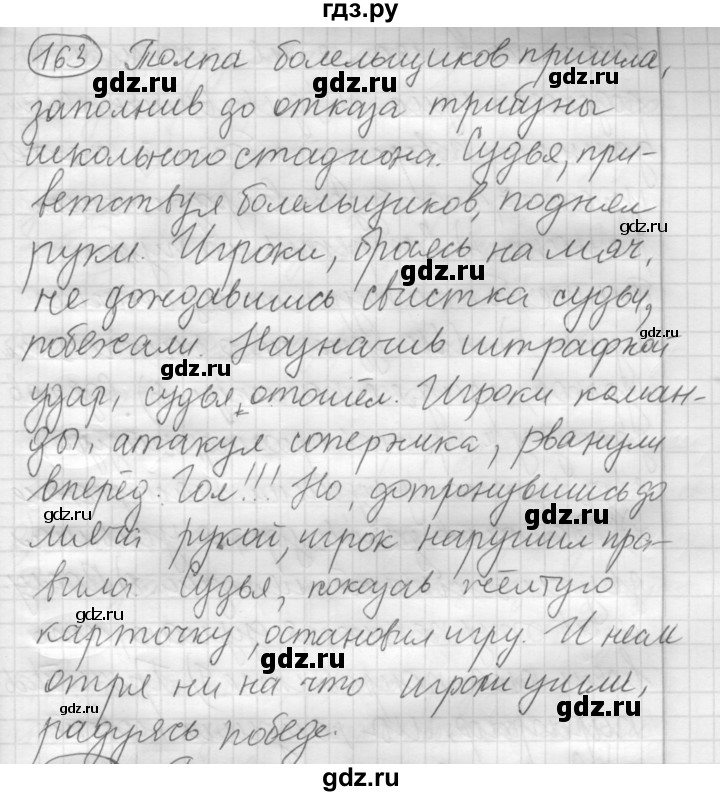 гдз.ру
163 Толпа болельщиков пришла,
gdz.ru gdz.ru
заполнив до отказа трибуны
школьного стадиона. Судья, при-
ветствуя болельщиков, поднял
gdz.ru
руки. Игроки, бросясь на мяч,
gdz.ru
не дождавшись свистка судьи,
побежали. Назначив штрафной
gdz.ru gdz.ru
удар, судья отошёл. Игроки коман-
ды, атакуя соперника, рванули
вперёд. Гол!!! Но, дотронувшись до
gdz.ru gdz.ru
мяча рукой, игрок нарушил пра-
вила. Судья, показав жёлтую
gdz.ru
карточку, остановил игру. И несм
gdz.ru
отря ни на что игроки ушли,
gdz.ru gdz.ru
радуясь победе.
gdz.ru